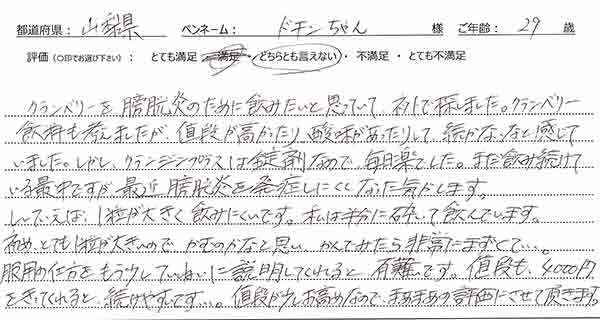 都道府県： 山梨県 ペンネーム： ドキンちゃん 様 ご年齢： 29 歳
評価（○印でお選び下さい）： とても満足 ・ 満足 ・ どちらとも言えない ・ 不満足 ・ とても不満足
クランベリーを膀胱炎のために飲みたいと思っていて、ネットで探しました。クランベリー
飲料も考えましたが、値段が高かったり、酸味があったりして、続かないなと感じて
いました。しかし、クランジンプラスは錠剤なので、毎日楽でした。まだ飲み続けて
いる最中ですが、最近膀胱炎を発症しにくくなった気がします。
しいていえば、1粒が大きく飲みにくいです。私は半分に砕いて飲んでいます。
初め、とても1粒が大きいので、かむのかなと思い、かんでみたら非常にまずくて…。
服用の仕方をもう少していねいに説明してくれると、有難いです。値段も、4000円
をきってくれると、続けやすいです…。値段が少しお高めなので、まあまあの評価にさせて頂きます。